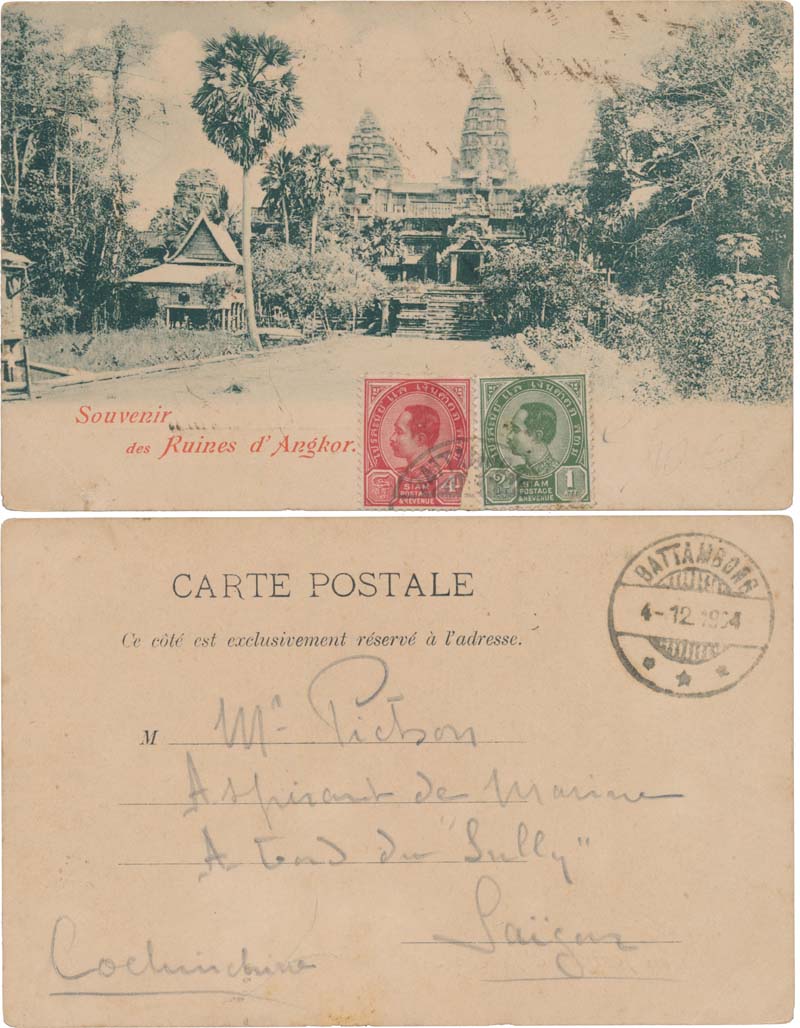 Souvenir
des Ruines d'Angkor.
4
SIAM
POSTAGE
& REVENUE
2 1
SIAM
POSTAGE
& REVENUE
CARTE POSTALE
Ce côté est exclusivement réservé à l'adresse.
BATTAMBONG
4-12 1904
M Mr Pictson
Aspirant de Marine
A bord du "Sully"
Saïgon
Cochinchine